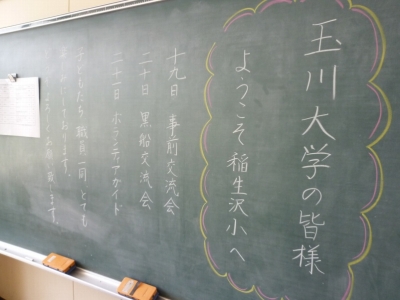 玉川大学の皆様
ようこそ稲生沢小へ
十九日 事前交流会
二十日 黒船交流会
二十一日 ボランティアガイド
子どもたち、職員一同、とても
楽しみにしております。
よろしくお願い致します。